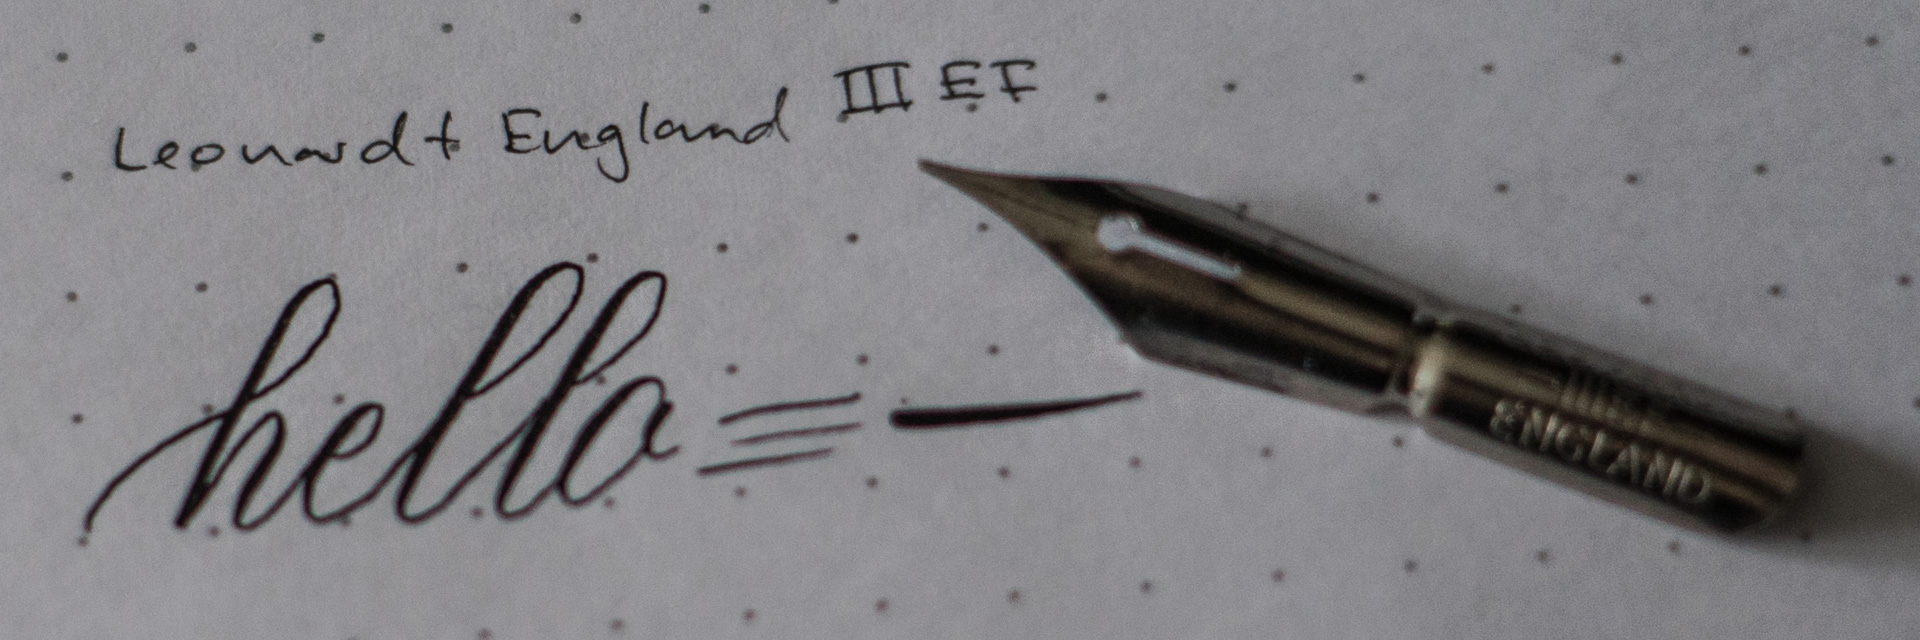 Leonardt England III EF
hello
ENGLAND